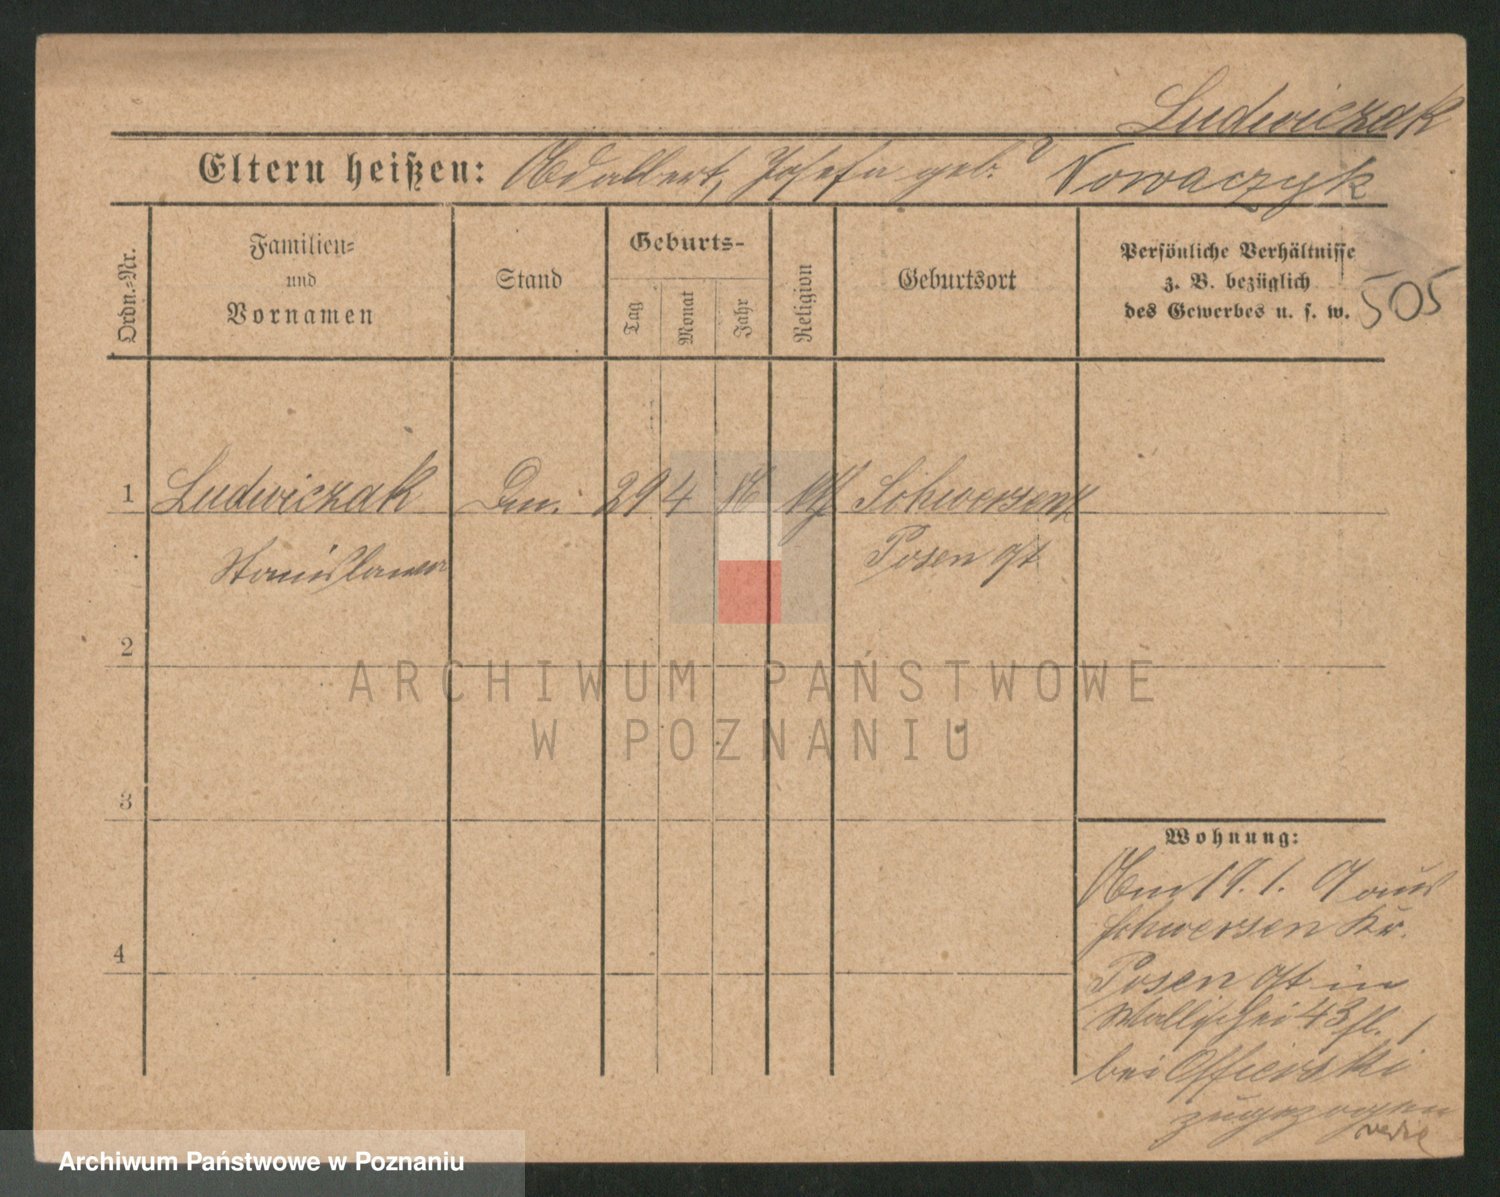 Ludwiczak
Eltern heißen: Adalbert, Josefa geb. Nowaczyk
Ordn.-Nr.
Familien-
und
Vornamen
Stand
Geburts-
Tag
Monat
Jahr
Religion
Geburtsort
Persönliche Verhältnisse
z. B. bezüglich
des Gewerbes u. s. w.
505
1 Ludwiczak 29 4 Schwersenz
Stanislaus Posen Ost
2
ARCHIWUM PAŃSTWOWE
W POZNANIU
3
Wohnung:
Am 19. 1. aus
Schwersenz Kr.
4
Posen Ost in
Wallischei 43
bei
zugezogen
Archiwum Państwowe w Poznaniu